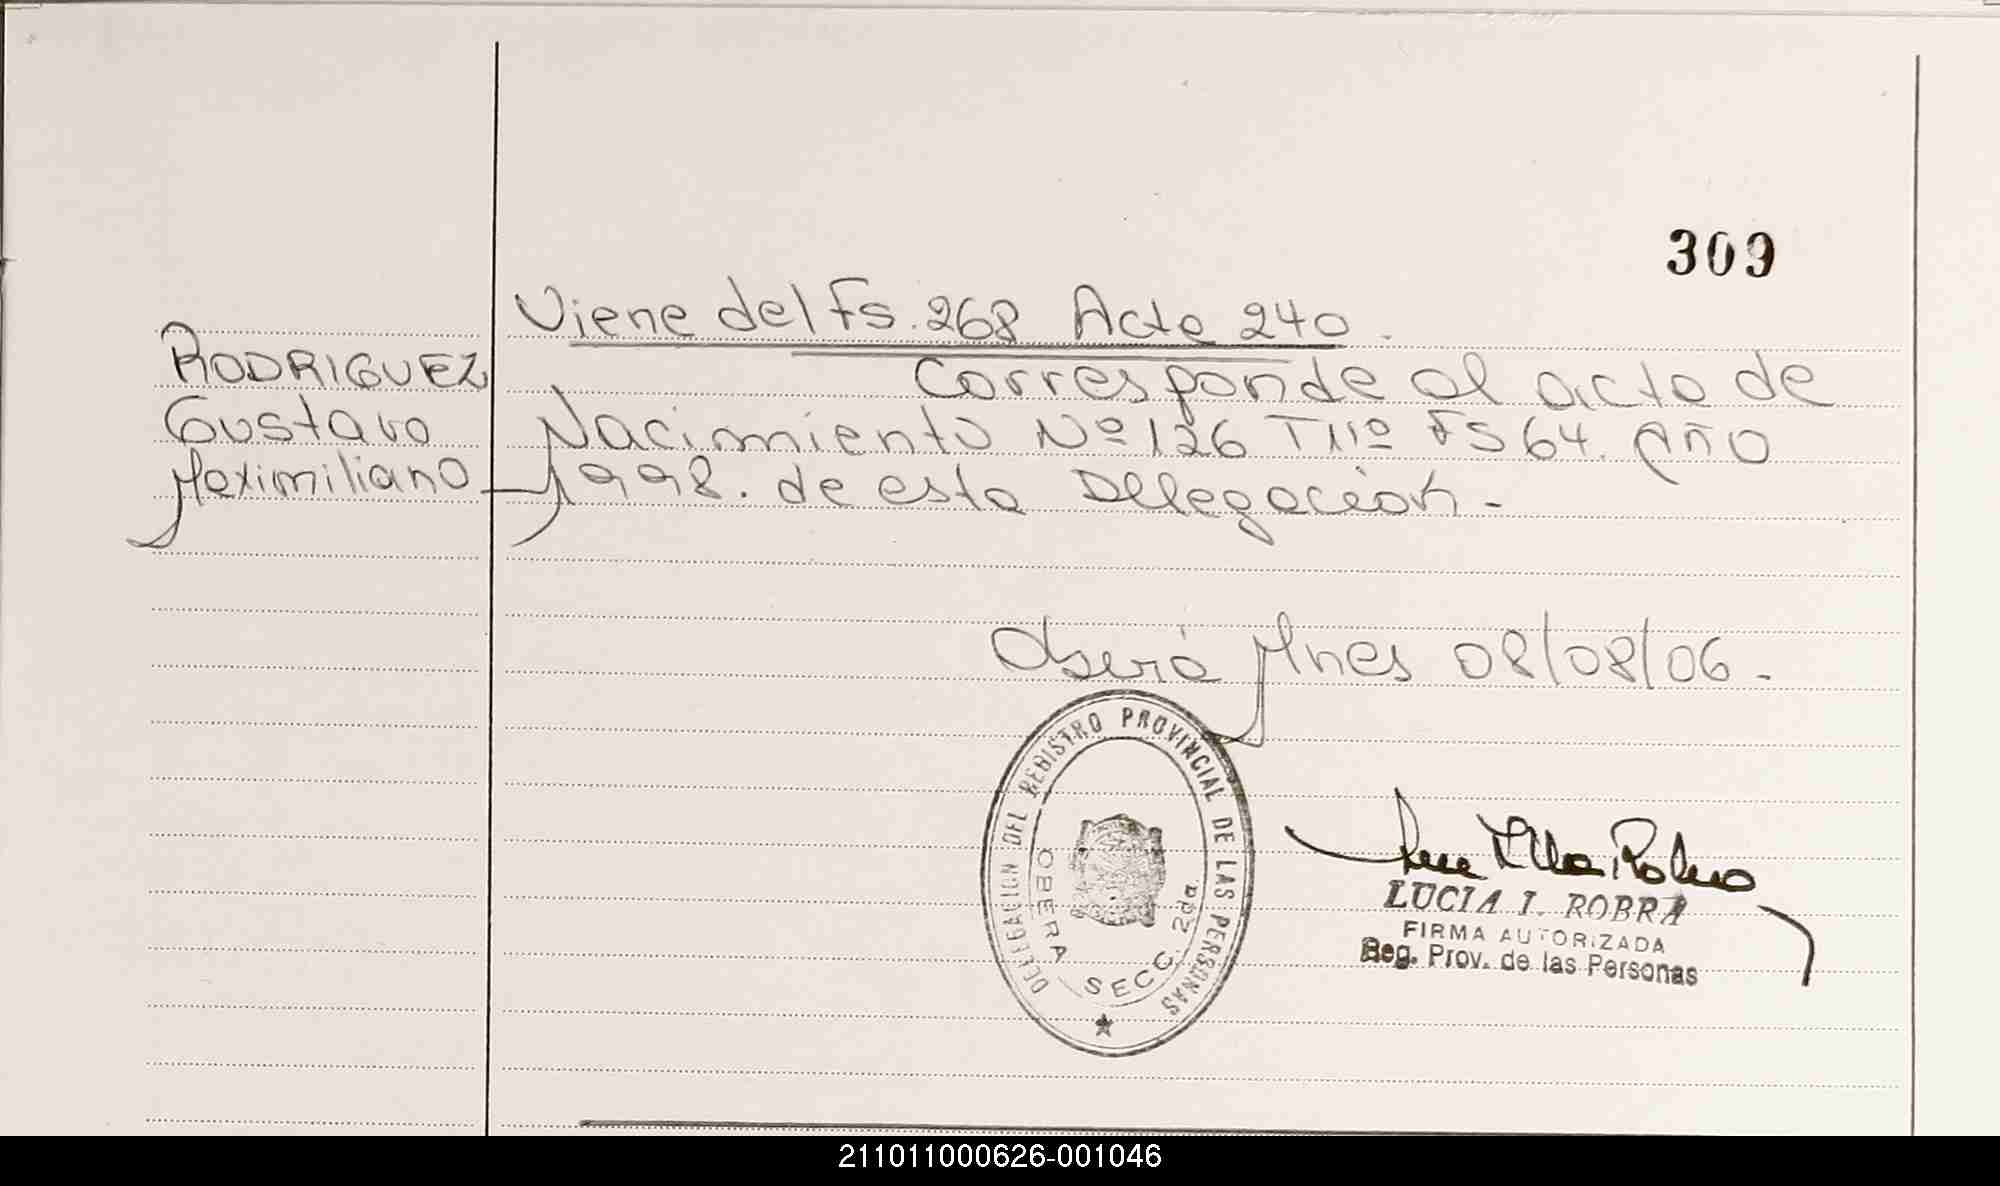 309
Viene del Fs. 268 Acta 240.
RODRIGUEZ
Gustavo
Maximiliano
Corresponde al acta de
Nacimiento Nº 126 T IIº FS 64. Año
1998. de esta Delegación -
Oberá Mnes 08/08/06.-
DELEGACION DEL REGISTRO PROVINCIAL DE LAS PERSONAS
OBERA SECC. 2da.
LUCIA I. ROBRA
FIRMA AUTORIZADA
Reg. Prov. de las Personas
211011000626-001046